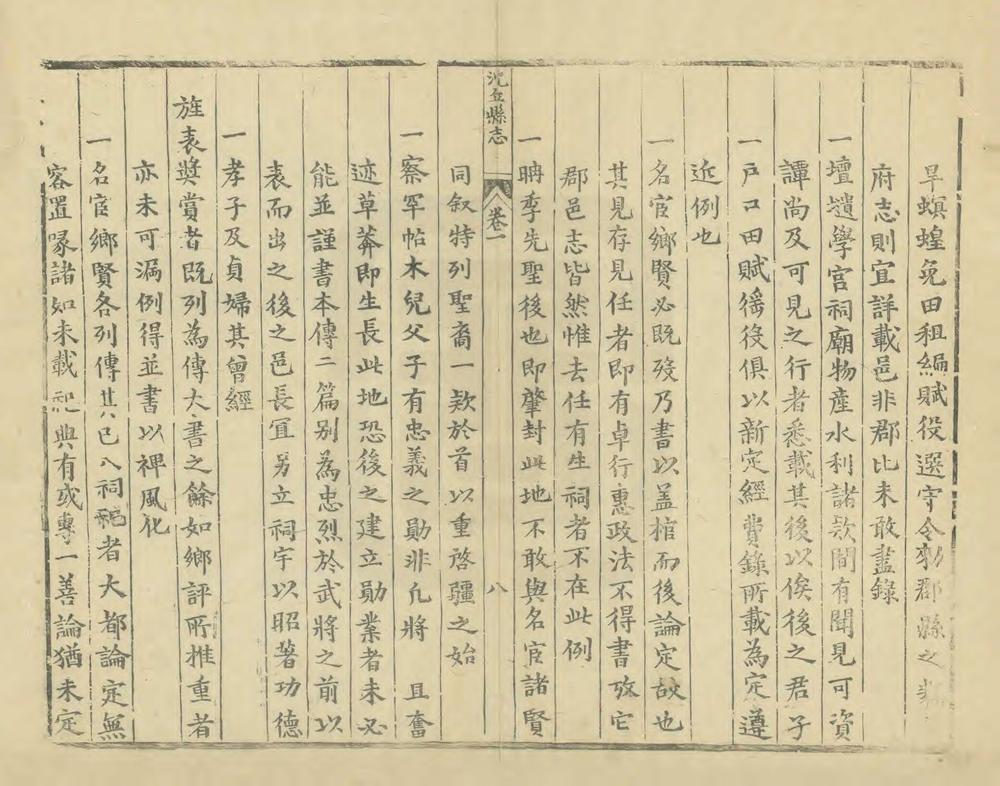 旱螟蝗免田租編賦役選守令勑郡縣之
府志則宜詳載邑非郡比未敢盡錄
一壇壝學宮祠廟物産水利諸欵間有聞見可資
譚尚及可見之行者悉載其後以俟後之君子
一戸口田賦徭役俱以新定經費錄所載為定遵
近例也
一名官鄉賢必既歿乃書以盖棺而後論定故也
其見存見任者即有卓行惠政法不得書攷它
郡邑志皆然惟去任有生祠者不在此例
一聃季先聖後也即肇封此地不敢與名宦諸賢
沈丘縣志 卷一 八
同叙特列聖裔一欵於首以重啓疆之始
一察罕帖木兒父子有忠義之勛非凢將 且奮
迹草莽即生長此地恐後之建立勛業者未必
能並謹書本傳二篇别為忠烈於武將之前以
表而出之後之邑長宜另立祠宇以昭著功德
一孝子及貞婦其曾經
旌表奬賞者既列為傳大書之餘如鄉評所推重者
亦未可漏例得並書以禆風化
一名宦鄉賢各列傳其已入祠祀者大都論定無
容置喙諸如未載祀典有或專一善論猶未定